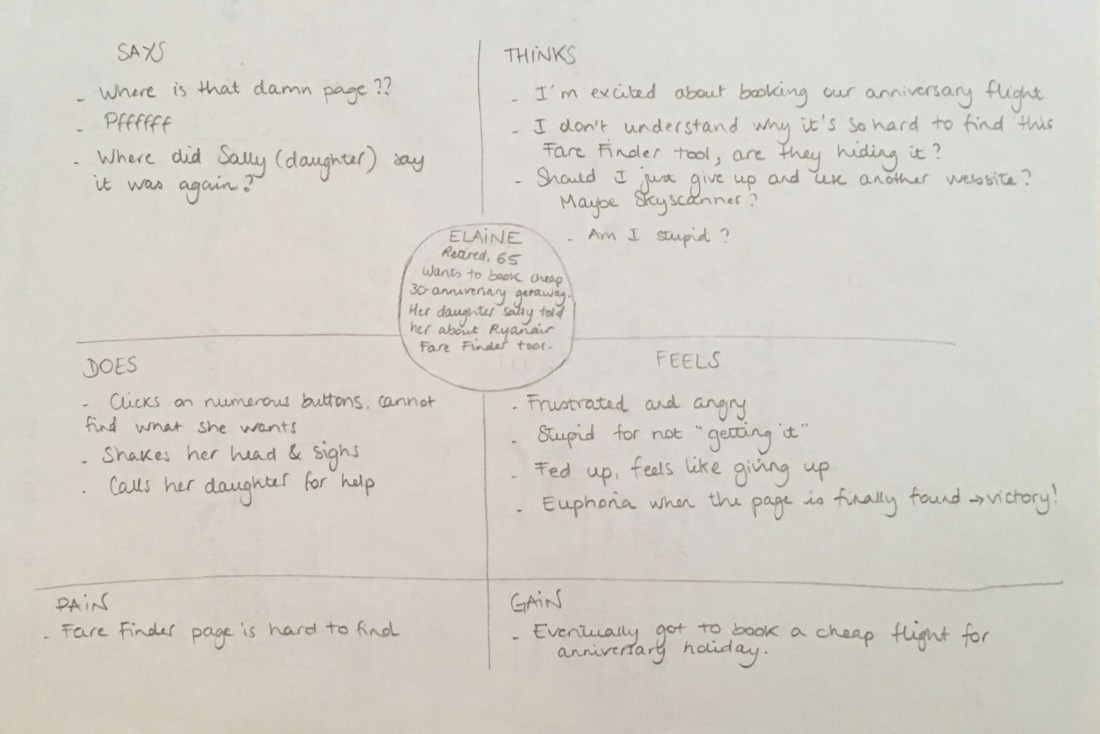 SAYS
- Where is that damn page??
- Pffffff
- Where did Sally (daughter) say
it was again?
THINKS
- I'm excited about booking our anniversary flight
- I don't understand why it's so hard to find this
Fare Finder tool, are they hiding it?
- Should I just give up and use another website?
Maybe Skyscanner?
- Am I stupid?
ELAINE
Retired, 65
Wants to book cheap
30-anniversary getaway.
Her daughter Sally told
her about Ryanair
Fare Finder tool.
DOES
- Clicks on numerous buttons, cannot
find what she wants
- Shakes her head & sighs
- Calls her daughter for help
FEELS
- Frustrated and angry
- Stupid for not "getting it"
- Fed up, feels like giving up
- Euphoria when the page is finally found → victory!
PAIN
- Fare Finder page is hard to find
GAIN
- Eventually got to book a cheap flight for
anniversary holiday.